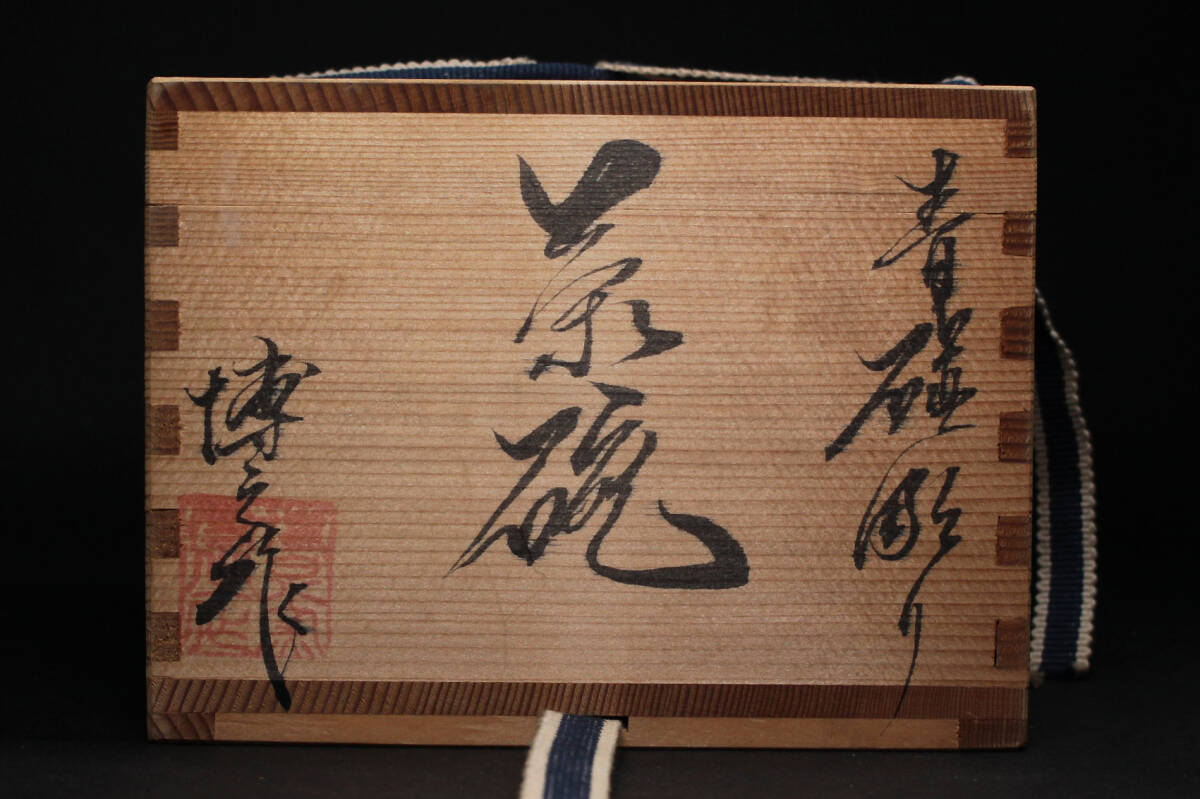 青磁彫り
茶碗
博之作